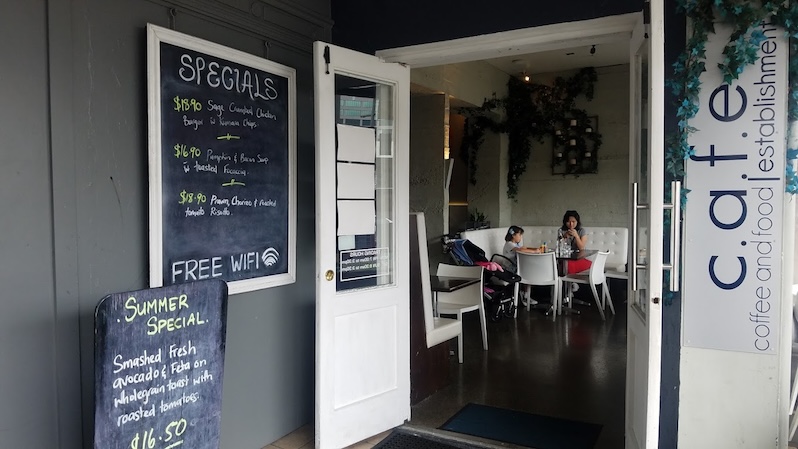 SPECIALS
$18.90 Sage Crumbed Chicken
Burger w Kumara Chips.
$16.90 Pumpkin & Bacon Soup
w toasted Focaccia.
$18.90 Prawn, Chorizo & roasted
tomato Risotto.
FREE WIFI
SUMMER
SPECIAL.
Smashed Fresh
avocado & Feta on
wholegrain toast with
roasted tomatoes.
$16.50
c.a.f.e
coffee and food establishment